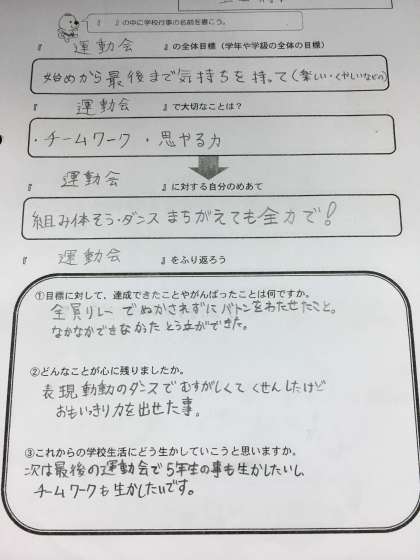 『 』の中に学校行事の名前を書こう。
『 運動会 』の全体目標（学年や学級の全体の目標）
始めから最後まで気持ちを持って(楽しい・くやしいなどの)
『 運動会 』で大切なことは？
・チームワーク ・思やる力
『 運動会 』に対する自分のめあて
組み体そう・ダンス まちがえても全力で!
『 運動会 』をふり返ろう
①目標に対して、達成できたことやがんばったことは何ですか。
全員リレーでぬかされずにバトンをわたせたこと。
なかなかできなかったとう立ができた。
②どんなことが心に残りましたか。
表現動動のダンスでむずがしくてくせんしたけど
おもいっきり力を出せた事。
③これからの学校生活にどう生かしていこうと思いますか。
次は最後の運動会で5年生の事も生かしたいし、
チームワークも生かしたいです。